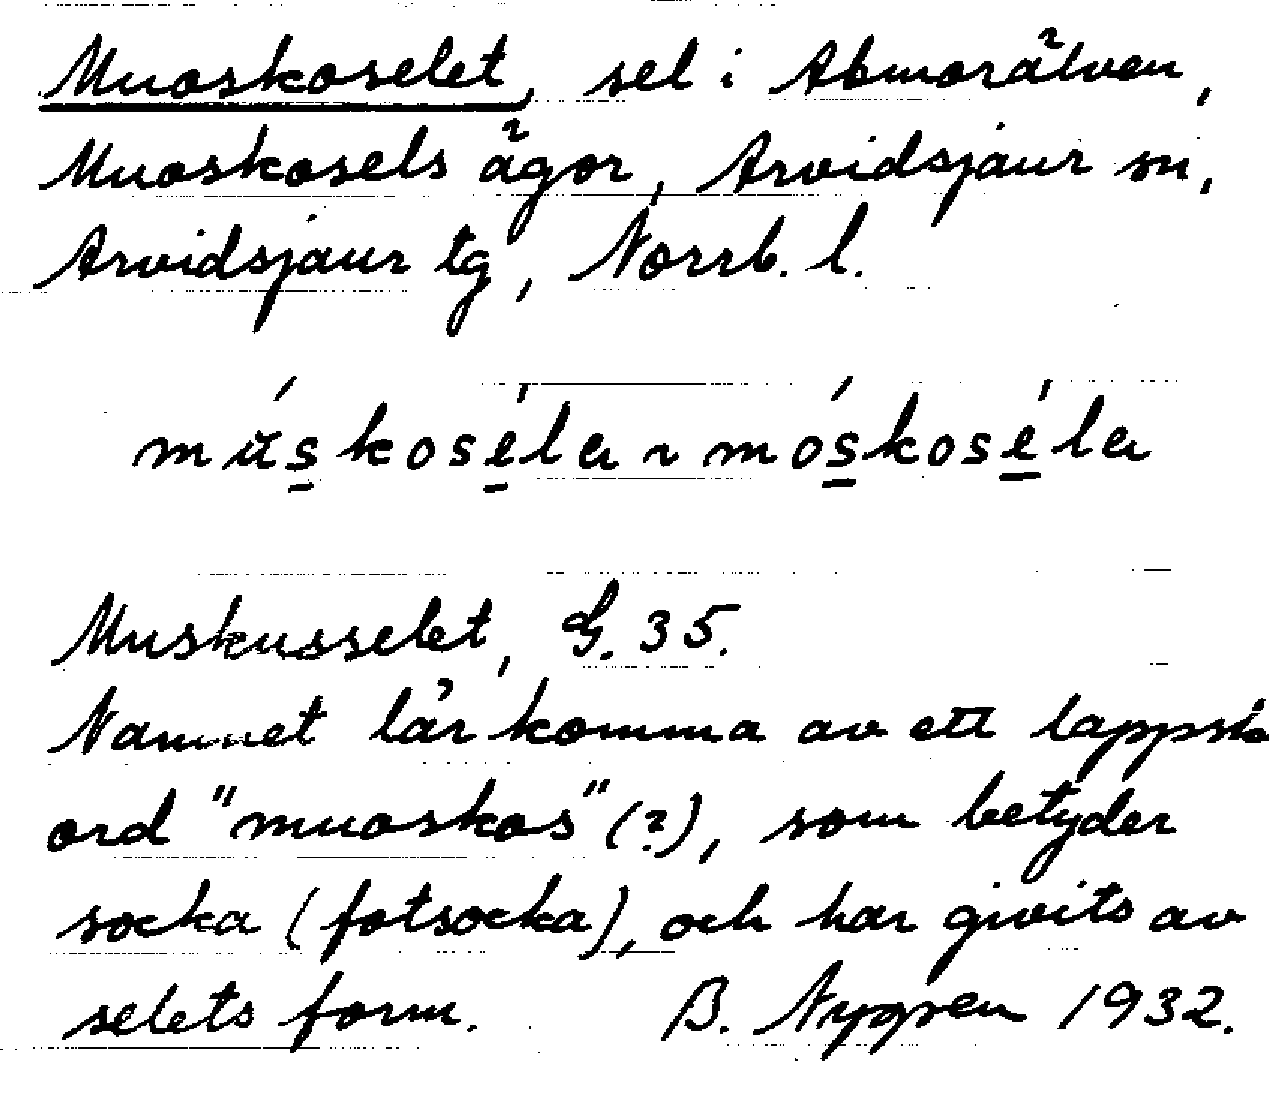 Muoskoselet, sel i Abmorälven,
Muoskosels ägor, Arvidsjaur sn,
Arvidsjaur tg, Norrb. l.
mú̆s̲kosé̲la ~ móskosé̲la
Muskusselet, G. 35.
Namnet lär komma av ett lappsk
ord "muoskos" (?), som betyder
socka (fotsocka), och har givits av
selets form. B. Nygren 1932.